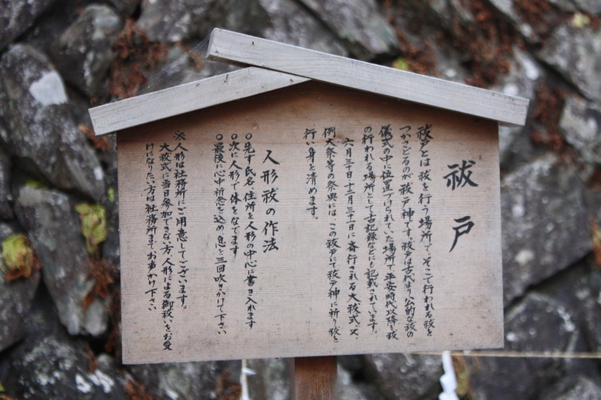 祓戸
祓戸とは祓を行う場所で、そこで行われる祓を
つかさどるのが祓戸神です。祓戸は古代より公的な祓の
儀式の中に位置づけられていた場所で平安時代以降、祓
の行われる場所として古記録などにも記載されています。
六月三十日、十二月三十一日に斎行される大祓式、又
例大祭等の祭典には、この祓戸にて祓戸神に祈り祓を
行い身を清めます。
人形祓の作法
○先ず氏名・住所を人形の中心に書き入れます
○次に人形で体をなでます
○最後に心中祈念を込め、息を三回吹きかけて下さい
※人形は社務所にご用意してございます。
大祓式に当日参加できない方、人形による御祓いをお受
けになりたい方は社務所までお声かけ下さい